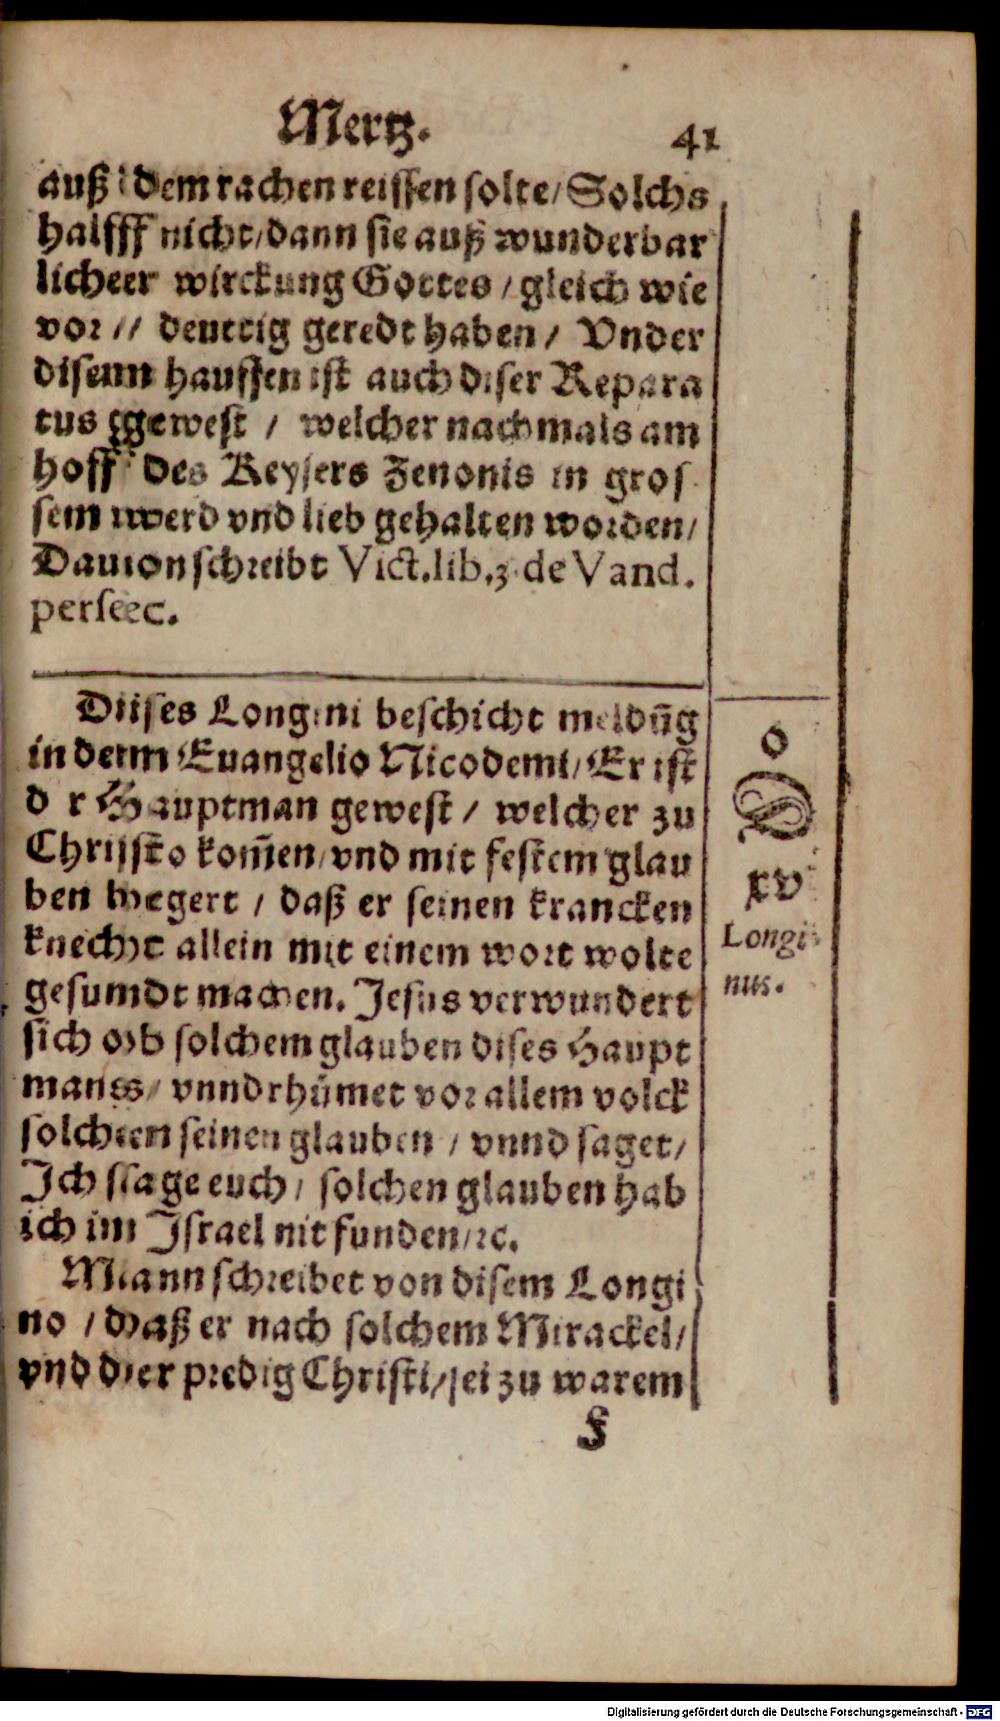 Mertz. 41
auß dem rachen reissen solte/ Solchs
halff nicht/ dann sie auß wunderbar
licher wirckung Gottes / gleich wie
vor // deuttig geredt haben / Vnder
disenn hauffen ist auch diser Repara
tus gewest / welcher nachmals am
hoff des Keysers Zenonis in gros
sem werd vnd lieb gehalten worden/
Dauon schreibt Vict. lib. 3. de Vand.
persec.
Dises Longini beschicht meldūg
in dem Euangelio Nicodemi/ Er ist
d r Hauptman gewest / welcher zu
Christo kom̄en/ vnd mit festem glau
ben begert / daß er seinen krancken
knecht allein mit einem wort wolte
gesundt machen. Jesus verwundert
sich ob solchem glauben dises Haupt
mans/ vnnd rhümet vor allem volck
solchen seinen glauben / vnnd saget/
Ich sage euch / solchen glauben hab
ich im Israel nit funden/ ꝛc.
Mann schreibet von disem Longi
no / daß er nach solchem Mirackel/
vnd der predig Christi/ sei zu warem
F
o
D
xv
Longi-
nus.
Digitalisierung gefördert durch die Deutsche Forschungsgemeinschaft - DFG